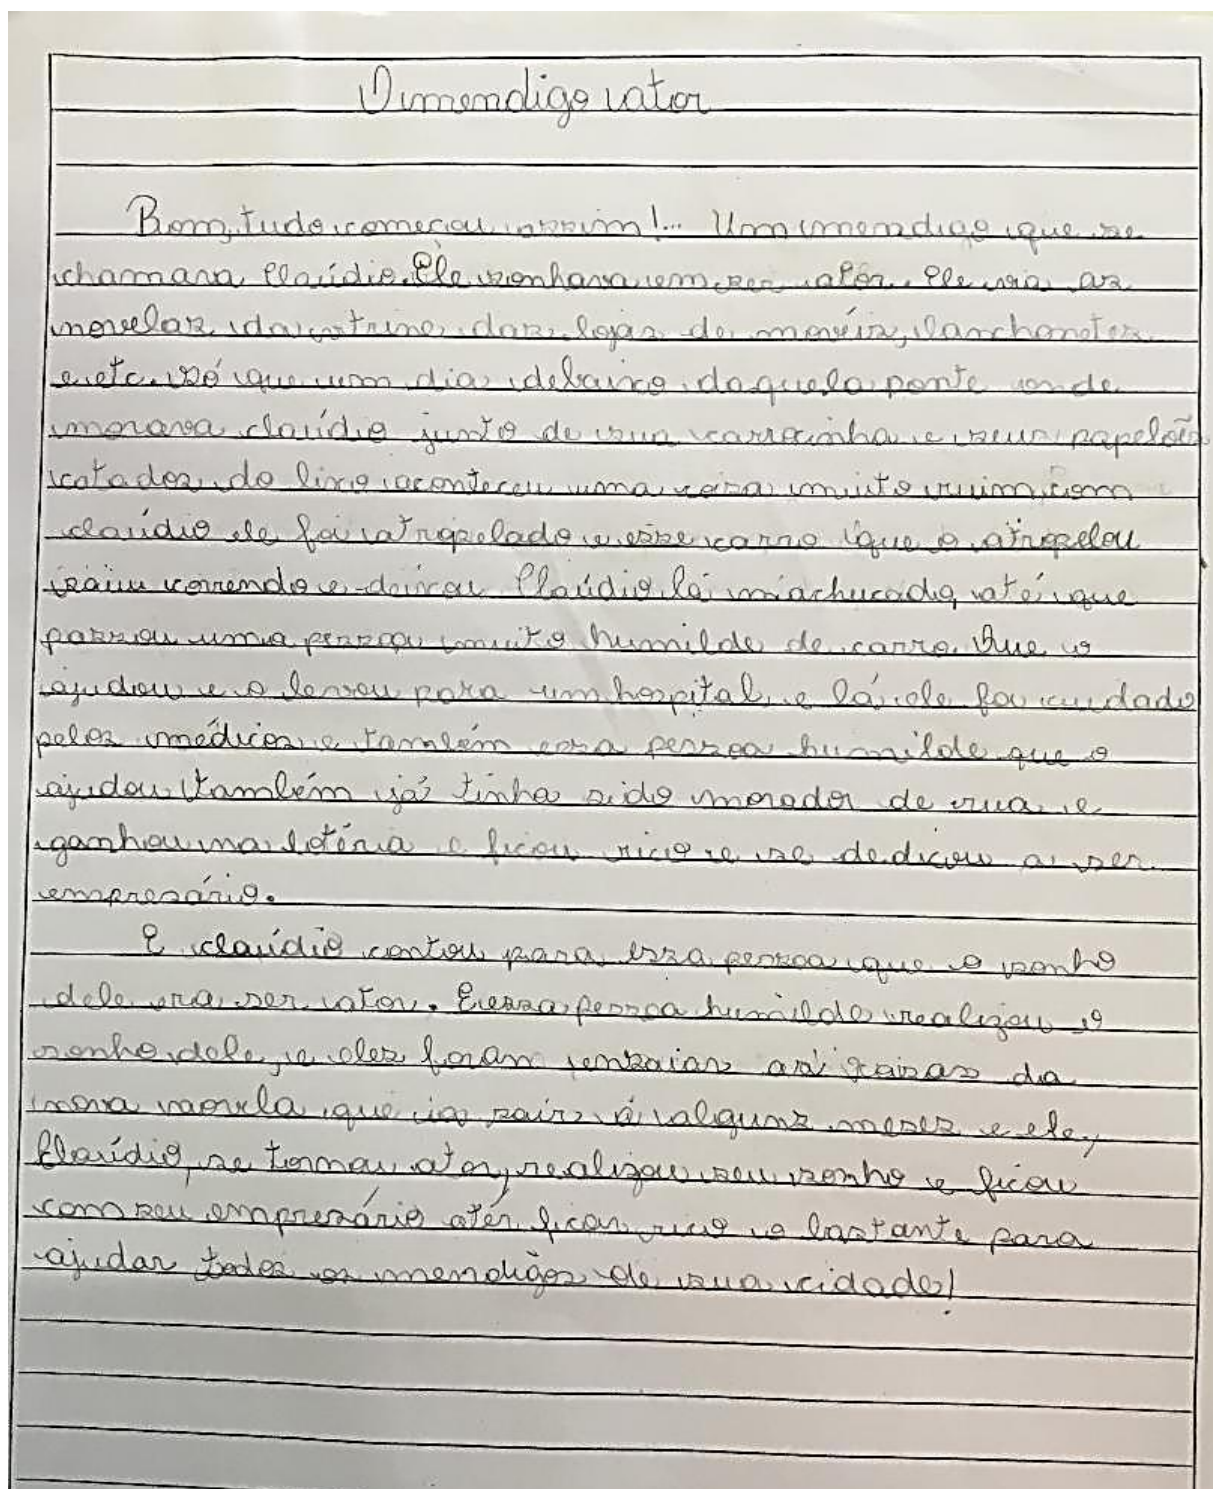 O mendigo ator
Bom, tudo começou assim!... Um mendigo que se
chamava Claúdio. Ele sonhava em ser atór. Ele via as
novelas da vitrine das lojas de movéis, lanchonetes
e etc. Só que um dia debaixo daquela ponte onde
morava claúdio junto de sua carrocinha e seus papelões
catados do lixo aconteceu uma coisa muito ruim com
claúdio ele foi atropelado e esse carro que o atropelou
saiu correndo e deixou Claúdio lá machucado, até que
passou uma pessoa muito humilde de carro. Que o
ajudou e o levou para um hospital, e lá ele foi cuidado
pelos médicos e também essa pessoa humilde que o
ajudou também já tinha sido morador de rua e
ganhou na lotéria e ficou rico e se dedicou a ser
empresário.
E claúdio contou para essa pessoa que o sonho
dele era ser ator. E essa pessoa humilde realizou o
sonho dele, e eles foram ensaiar as da
nova novela que ia sair á alguns meses e ele,
Claúdio, se tornou ator, realizou seu sonho e ficou
com seu empresário até ficar rico o bastante para
ajudar todos os mendigos de sua cidade!